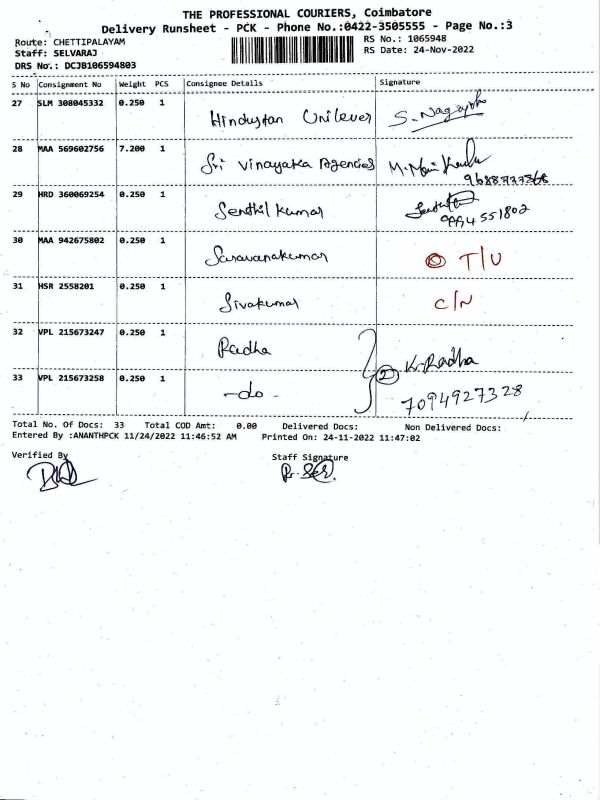 THE PROFESSIONAL COURIERS, Coimbatore
Delivery Runsheet - PCK - Phone No.:0422-3505555 - Page No.:3
Route: CHETTIPALAYAM
RS No.: 1065948
Staff: SELVARAJ
RS Date: 24-Nov-2022
DRS No.: DCJB106594803
S No Consignment No Weight PCS Consignee Details Signature
27 SLM 308045332 0.250 1 Hindustan Unilever
28 MAA 569602756 7.200 1 Sri Vinayaka Agencies
29 HRD 360069254 0.250 1 Senthil Kumar 9994551802
30 MAA 942675802 0.250 1 Saravanakumar T/U
31 HSR 2558201 0.250 1 Sivakumar C/N
32 VPL 215673247 0.250 1 Radha 2 K. Radha
33 VPL 215673258 0.250 1 -do- 7094927328
Total No. Of Docs: 33 Total COD Amt: 0.00 Delivered Docs: Non Delivered Docs:
Entered By :ANANTHPCK 11/24/2022 11:46:52 AM Printed On: 24-11-2022 11:47:02
Verified By Staff Signature